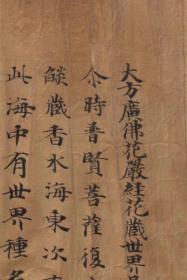 大方廣佛花嚴經花藏世界品
尒時普賢菩薩復
燄藏香水海東次右
此海中有世界種名